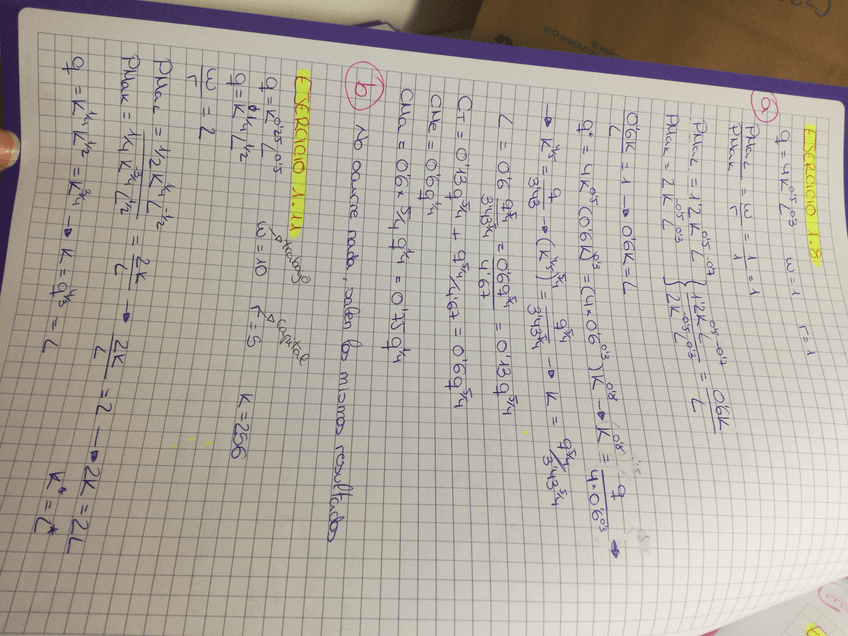 EJERCICIO 1.8
a
q = 4K^0'5 L^0'3 w = 1 r = 1
PMaL/PMaK = w/r = 1/1 = 1
PMaL = 1'2 K^0'5 L^-0'7 } 1'2 K^0'5 L^-0'7 / 2K^-0'5 L^0'3 = 0'6K/L
PMaK = 2K^-0'5 L^0'3
0'6K/L = 1 → 0'6K = L
q* = 4K^0'5 (0'6K)^0'3 = (4×0'6^0'3) K^0'8 → K^0'8 = q / 4·0'6^0'3 →
→ K^4/5 = q/3'43 → (K^4/5)^5/4 = q^5/4 / 3'43^5/4 → K = q^5/4 / 3'43^5/4
L = 0'6 q^5/4 / 3'43^5/4 = 0'6q^5/4 / 4'67 = 0'13q^5/4
CT = 0'13q^5/4 + q^5/4/4'67 = 0'6q^5/4
CMe = 0'6q^1/4
CMa = 0'6 × 5/4 q^1/4 = 0'75 q^1/4
b No ocurre nada, salen los mismos resultados
EJERCICIO 1.11
q = K^0'25 L^0'5 → trabajo → capital
q = K^1/4 L^1/2 w = 10 r = 5 K = 256
w/r = 2
PMaL = 1/2 K^1/4 L^-1/2
PMaK = 1/4 K^-3/4 L^1/2 = 2K/L → 2K/L = 2 → 2K = 2L
K* = L*
q = K^1/4 K^1/2 = K^3/4 → K = q^4/3 = L